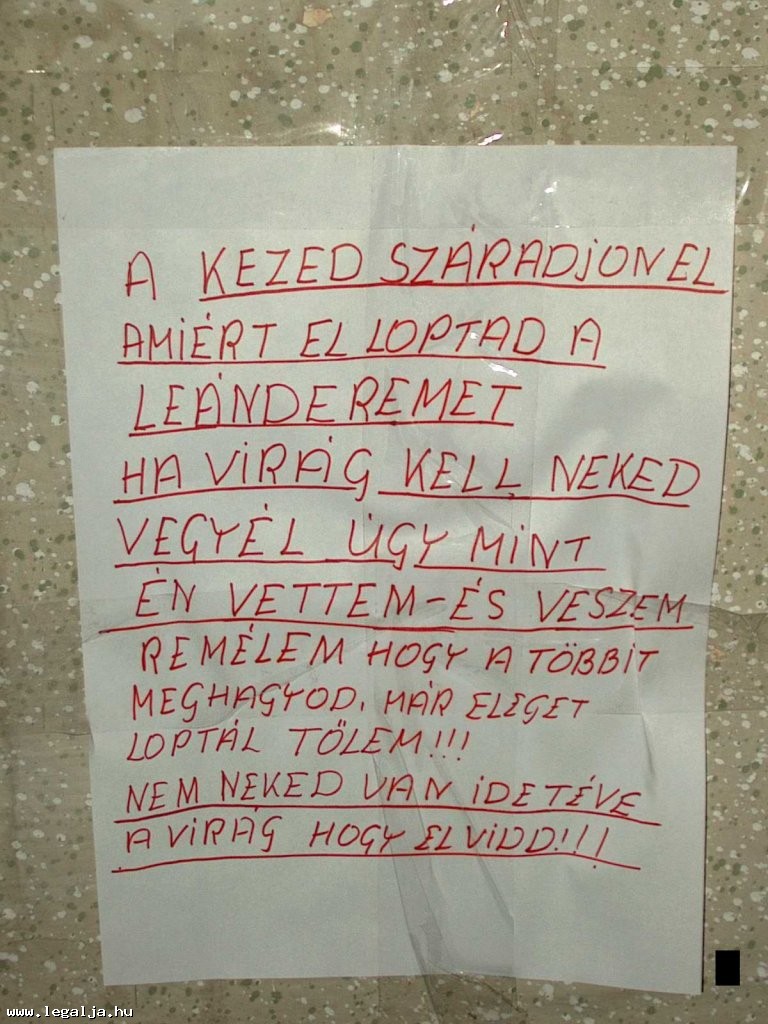 A KEZED SZÁRADJON EL
AMIÉRT EL LOPTAD A
LEÁNDEREMET
HA VIRÁG KELL NEKED
VEGYÉL ÚGY MINT
ÉN VETTEM-ÉS VESZEM
REMÉLEM HOGY A TÖBBIT
MEGHAGYOD, MÁR ELEGET
LOPTÁL TŐLEM!!!
NEM NEKED VAN IDETÉVE
A VIRÁG HOGY ELVIDD!!!
www.legalja.hu